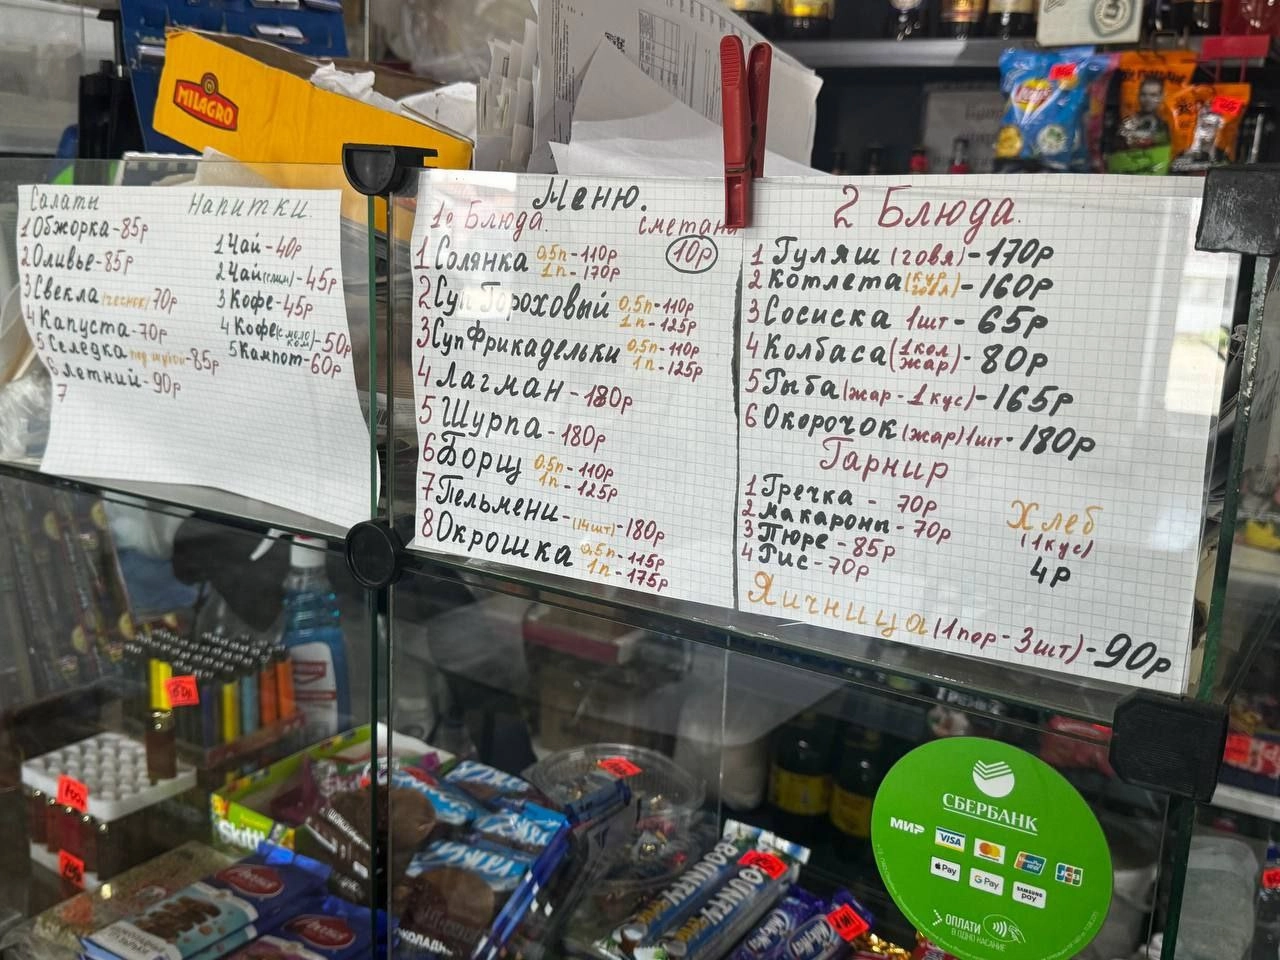 MILAGRO
Салаты
1 Обжорка-85р
2 Оливье-85р
3 Свекла (чеснок) 70р
4 Капуста-70р
5 Селедка под шубой-85р
6 Летний-90р
7
Напитки.
1 Чай-40р
2 Чай(слим)-45р
3 Кофе-45р
4 Кофе -50р
5 Кампот-60р
Меню.
1е Блюда.
сметана
10р
1 Солянка 0,5п-110р
1п-170р
2 Суп Гороховый 0,5п-110р
1п-125р
3 Суп Фрикадельки 0,5п-110р
1п-125р
4 Лагман-180р
5 Шурпа-180р
6 Борщ 0,5п-110р
1п-125р
7 Пельмени-(14шт)-180р
8 Окрошка 0,5п-115р
1п-175р
2 Блюда.
1 Гуляш (говя)-170р
2 Котлета (кур говя)-160р
3 Сосиска 1шт-65р
4 Колбаса (1кол жар)-80р
5 Рыба (жар-1кус)-165р
6 Окорочок (жар) 1шт-180р
Гарнир
1 Гречка-70р
2 Макароны-70р
3 Пюре-85р
4 Рис-70р
Хлеб
(1кус)
4р
Яичница (1пор-3шт)-90р
Lay's
Skittl
BOUNTY
BOUNTY
СБЕРБАНК
МИР VISA mastercard UnionPay JCB
Apple Pay G Pay SAMSUNG pay
ОПЛАТИ
В ОДНО КАСАНИЕ